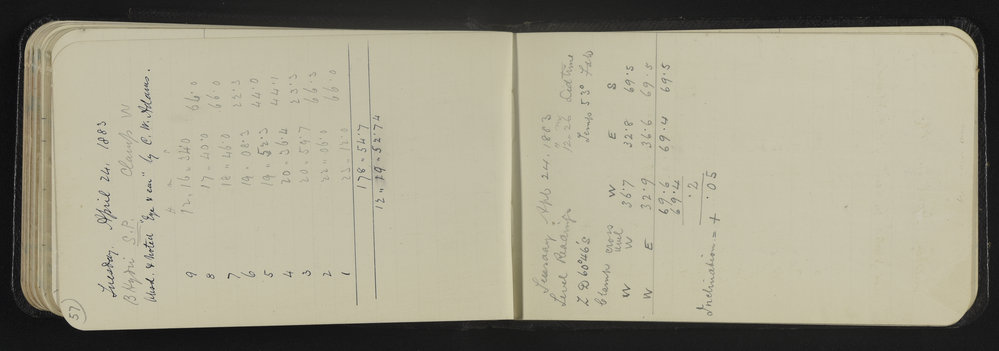 57
Tuesday. April 24. 1883
β Hydri S.P. Clamp W
Obsd. & Noted "Eye & ear" by C. W. Adams.
H m s
9 12.16.34.0 66.0
8 17.40.0 66.0
7 18.46.0 22.3
6 19.08.3 44.0
5 19.52.3 44.1
4 20.36.4 23.3
3 20.59.7 66.3
2 22.06.0 66.0
1 23.12.0
178.54.7
12.19.52.74
Tuesday Apl 24. 1883
Level Readings 12.26 Sid Time
Z D 60°46'S Temp 53° Fah
Clamp Cross W E S
end
W W 36.7 32.8 69.5
W E 32.9 36.6 69.5
69.6 69.4 69.5
69.4
.2
Inclination = + .05